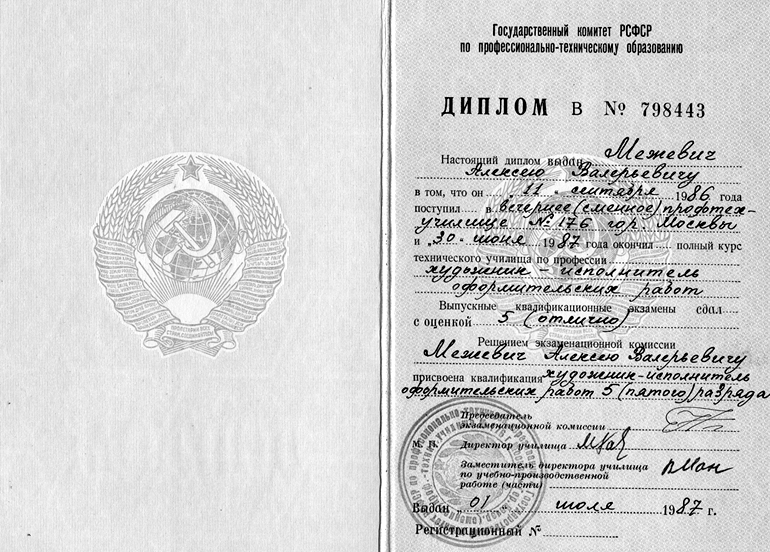 Государственный комитет РСФСР
по профессионально-техническому образованию
ДИПЛОМ В № 798443
Настоящий диплом выдан Межевич
Алексею Валерьевичу
в том, что он „11 „ сентября 1986 года
поступил в вечернее (сменное) профтех-
училище № 176 гор. Москвы
и „30„ июня 1987 года окончил полный курс
технического училища по профессии
художник - исполнитель
оформительских работ
Выпускные квалификационные экзамены сдал
с оценкой 5 (отлично)
Решением экзаменационной комиссии
Межевич Алексею Валерьевичу
присвоена квалификация художник-исполнитель
оформительских работ 5 (пятого) разряда
Председатель
экзаменационной комиссии
М. П. Директор училища
Заместитель директора училища
по учебно-производственной
работе (части)
Выдан „01„ июля 1987 г.
Регистрационный №